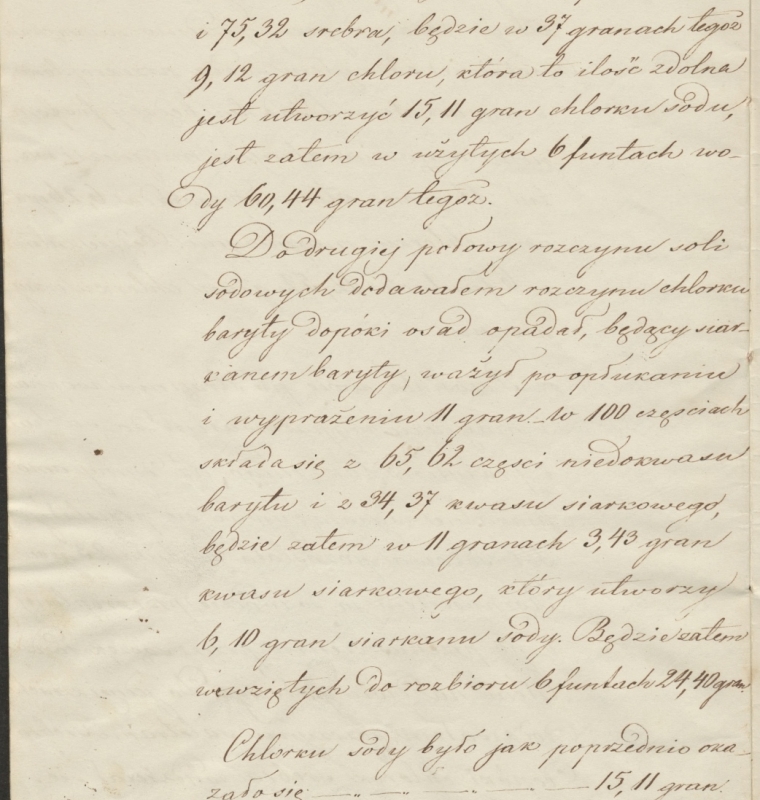 i 75,32 srebra, będzie w 37 granach tegoż
9,12 gran chloru, która to ilość zdolna
jest utworzyć 15,11 gran chlorku sodu,
jest zatem w użytych 6 funtach wo-
dy 60,44 gran tegoż.
Do drugiej połowy rozczynu soli
sodowych dodawałem rozczynu chlorku
baryty dopóki osad opadał, będący siar-
kanem baryty, ważył po opłukaniu
i wyprażeniu 11 gran. W 100 częściach
składa się z 65,62 części niedokwasu
barytu i z 34,37 kwasu siarkowego,
będzie zatem w 11 granach 3,43 gran
kwasu siarkowego, który utworzy
6,10 gran siarkanu sody. Będzie zatem
w wziętych do rozbioru 6 funtach 24,40 gran
Chlorku sody było jak poprzednio oka-
zało się — „ — „ — — — 15,11 gran.